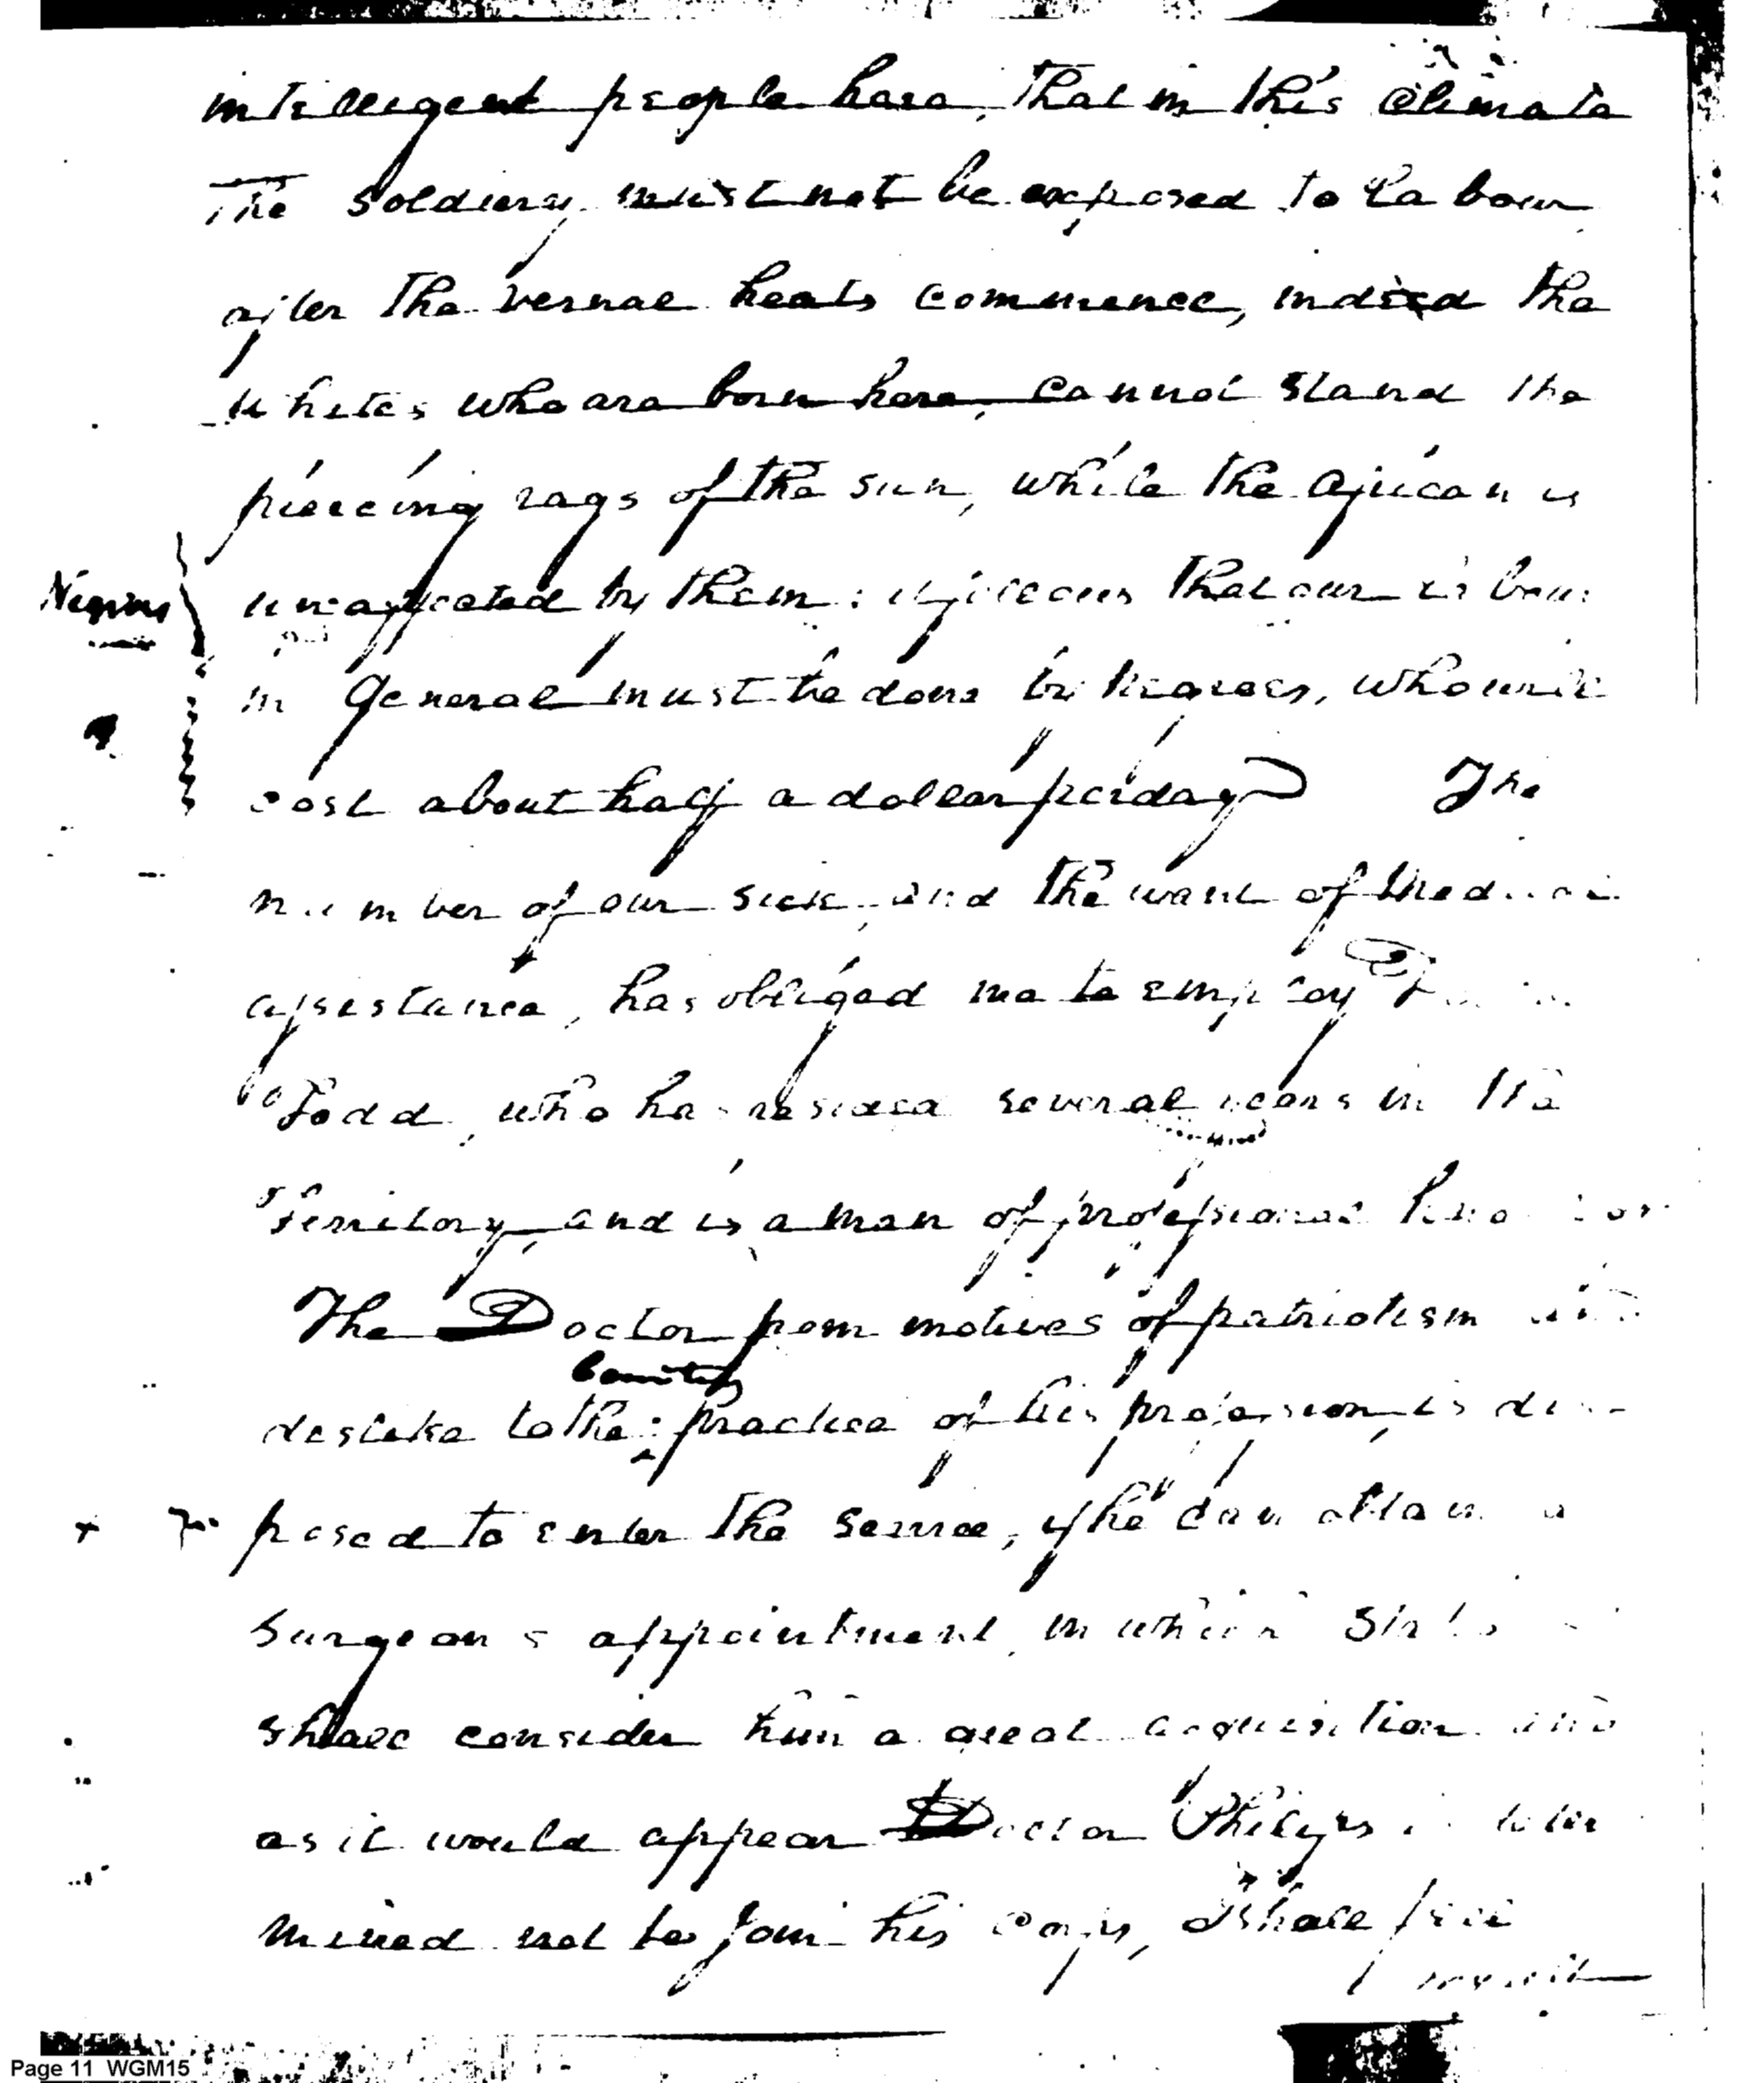 intelligent people here, that in this Climate
The soldiery must not be exposed to Labour
after the vernal heats commence, indeed the
whites who are born here, cannot stand the
piercing rays of the sun, while the African is
unaffected by them: it follows that our labour
in General must be done by Negroes, who will
cost about half a dollar per day The
number of our sick, and the want of Medical
assistance, has obliged me to employ
Todd, who has resided several years in the
Territory, and is a man of professional
The Doctor from motives of patriotism and
country
dislike to the practice of his profession, is dis-
posed to enter the service, if he can obtain a
Surgeons appointment, in which
shall consider him a great acquisition and
as it would appear Doctor Philips is deter
mined not to join his Corps, I shall feel
myself
Page 11 WGM15